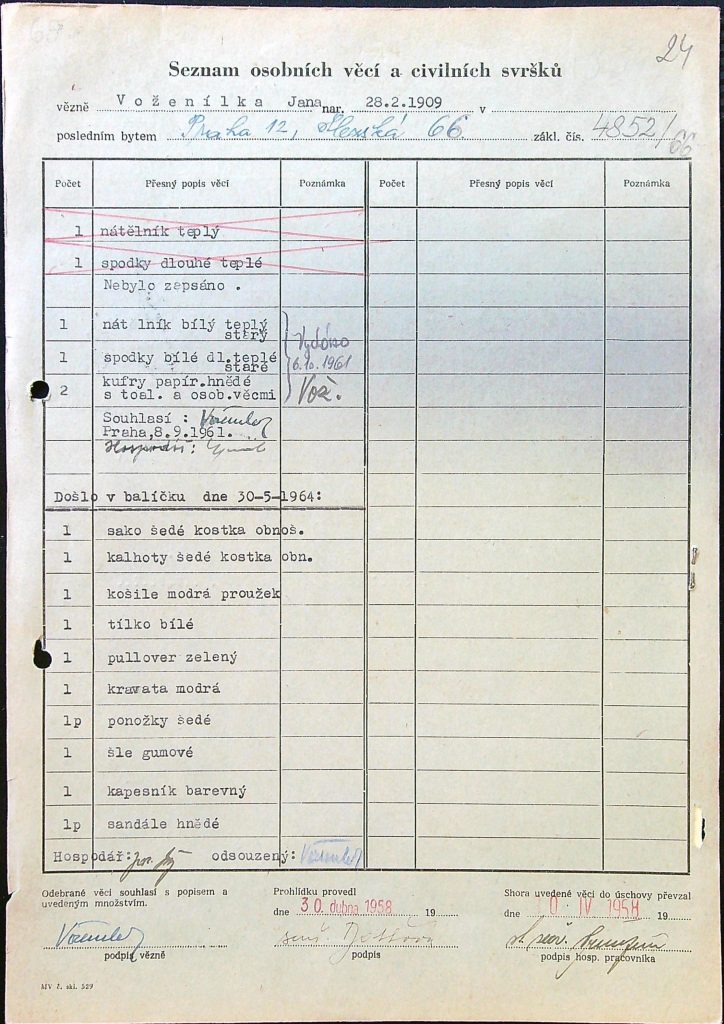 24
Seznam osobních věcí a civilních svršků
vězně Voženílka Jana nar. 28.2.1909 v
posledním bytem Praha 12, Slezská 66. zákl. čís. 4852/66
Počet Přesný popis věcí Poznámka Počet Přesný popis věcí Poznámka
1 nátělník teplý
1 spodky dlouhé teplé
Nebylo zepsáno .
1 nát lník bílý teplý
starý
1 spodky bílé dl.teplé
staré
2 kufry papír.hnědé
s toal. a osob.věcmi
Vydáno
6.10.1961
Vož.
Souhlasí :
Praha,8.9.1961.
Hospodář:
Došlo v balíčku dne 30-5-1964:
1 sako šedé kostka obnoš.
1 kalhoty šedé kostka obn.
1 košile modrá proužek
1 tílko bílé
1 pullover zelený
1 kravata modrá
1p ponožky šedé
1 šle gumové
1 kapesník barevný
1p sandále hnědé
Hospodář: odsouzený:
Odebrané věci souhlasí s popisem a
uvedeným množstvím.
podpis vězně
Prohlídku provedl
dne 30. dubna 1958 19
podpis
Shora uvedené věci do úschovy převzal
dne 0 IV 1958 19
podpis hosp. pracovníka
MV č. skl. 529